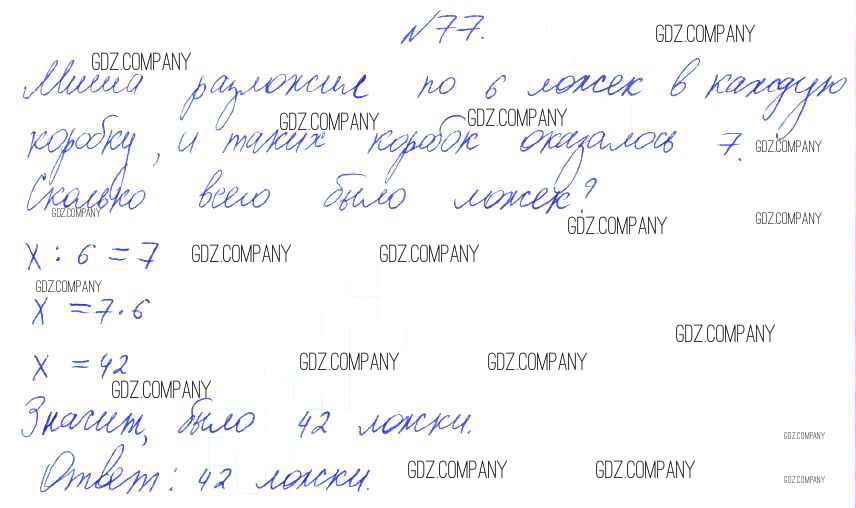 №77.
GDZ.COMPANY
GDZ.COMPANY
Миша разложил по 6 ложек в каждую
GDZ.COMPANY GDZ.COMPANY
коробку, и таких коробок оказалось 7.
GDZ.COMPANY
Сколько всего было ложек?
GDZ.COMPANY
GDZ.COMPANY GDZ.COMPANY
x : 6 = 7
GDZ.COMPANY GDZ.COMPANY
GDZ.COMPANY
x = 7 · 6
GDZ.COMPANY
x = 42
GDZ.COMPANY GDZ.COMPANY
GDZ.COMPANY
Значит, было 42 ложки.
GDZ.COMPANY
Ответ: 42 ложки.
GDZ.COMPANY GDZ.COMPANY
GDZ.COMPANY